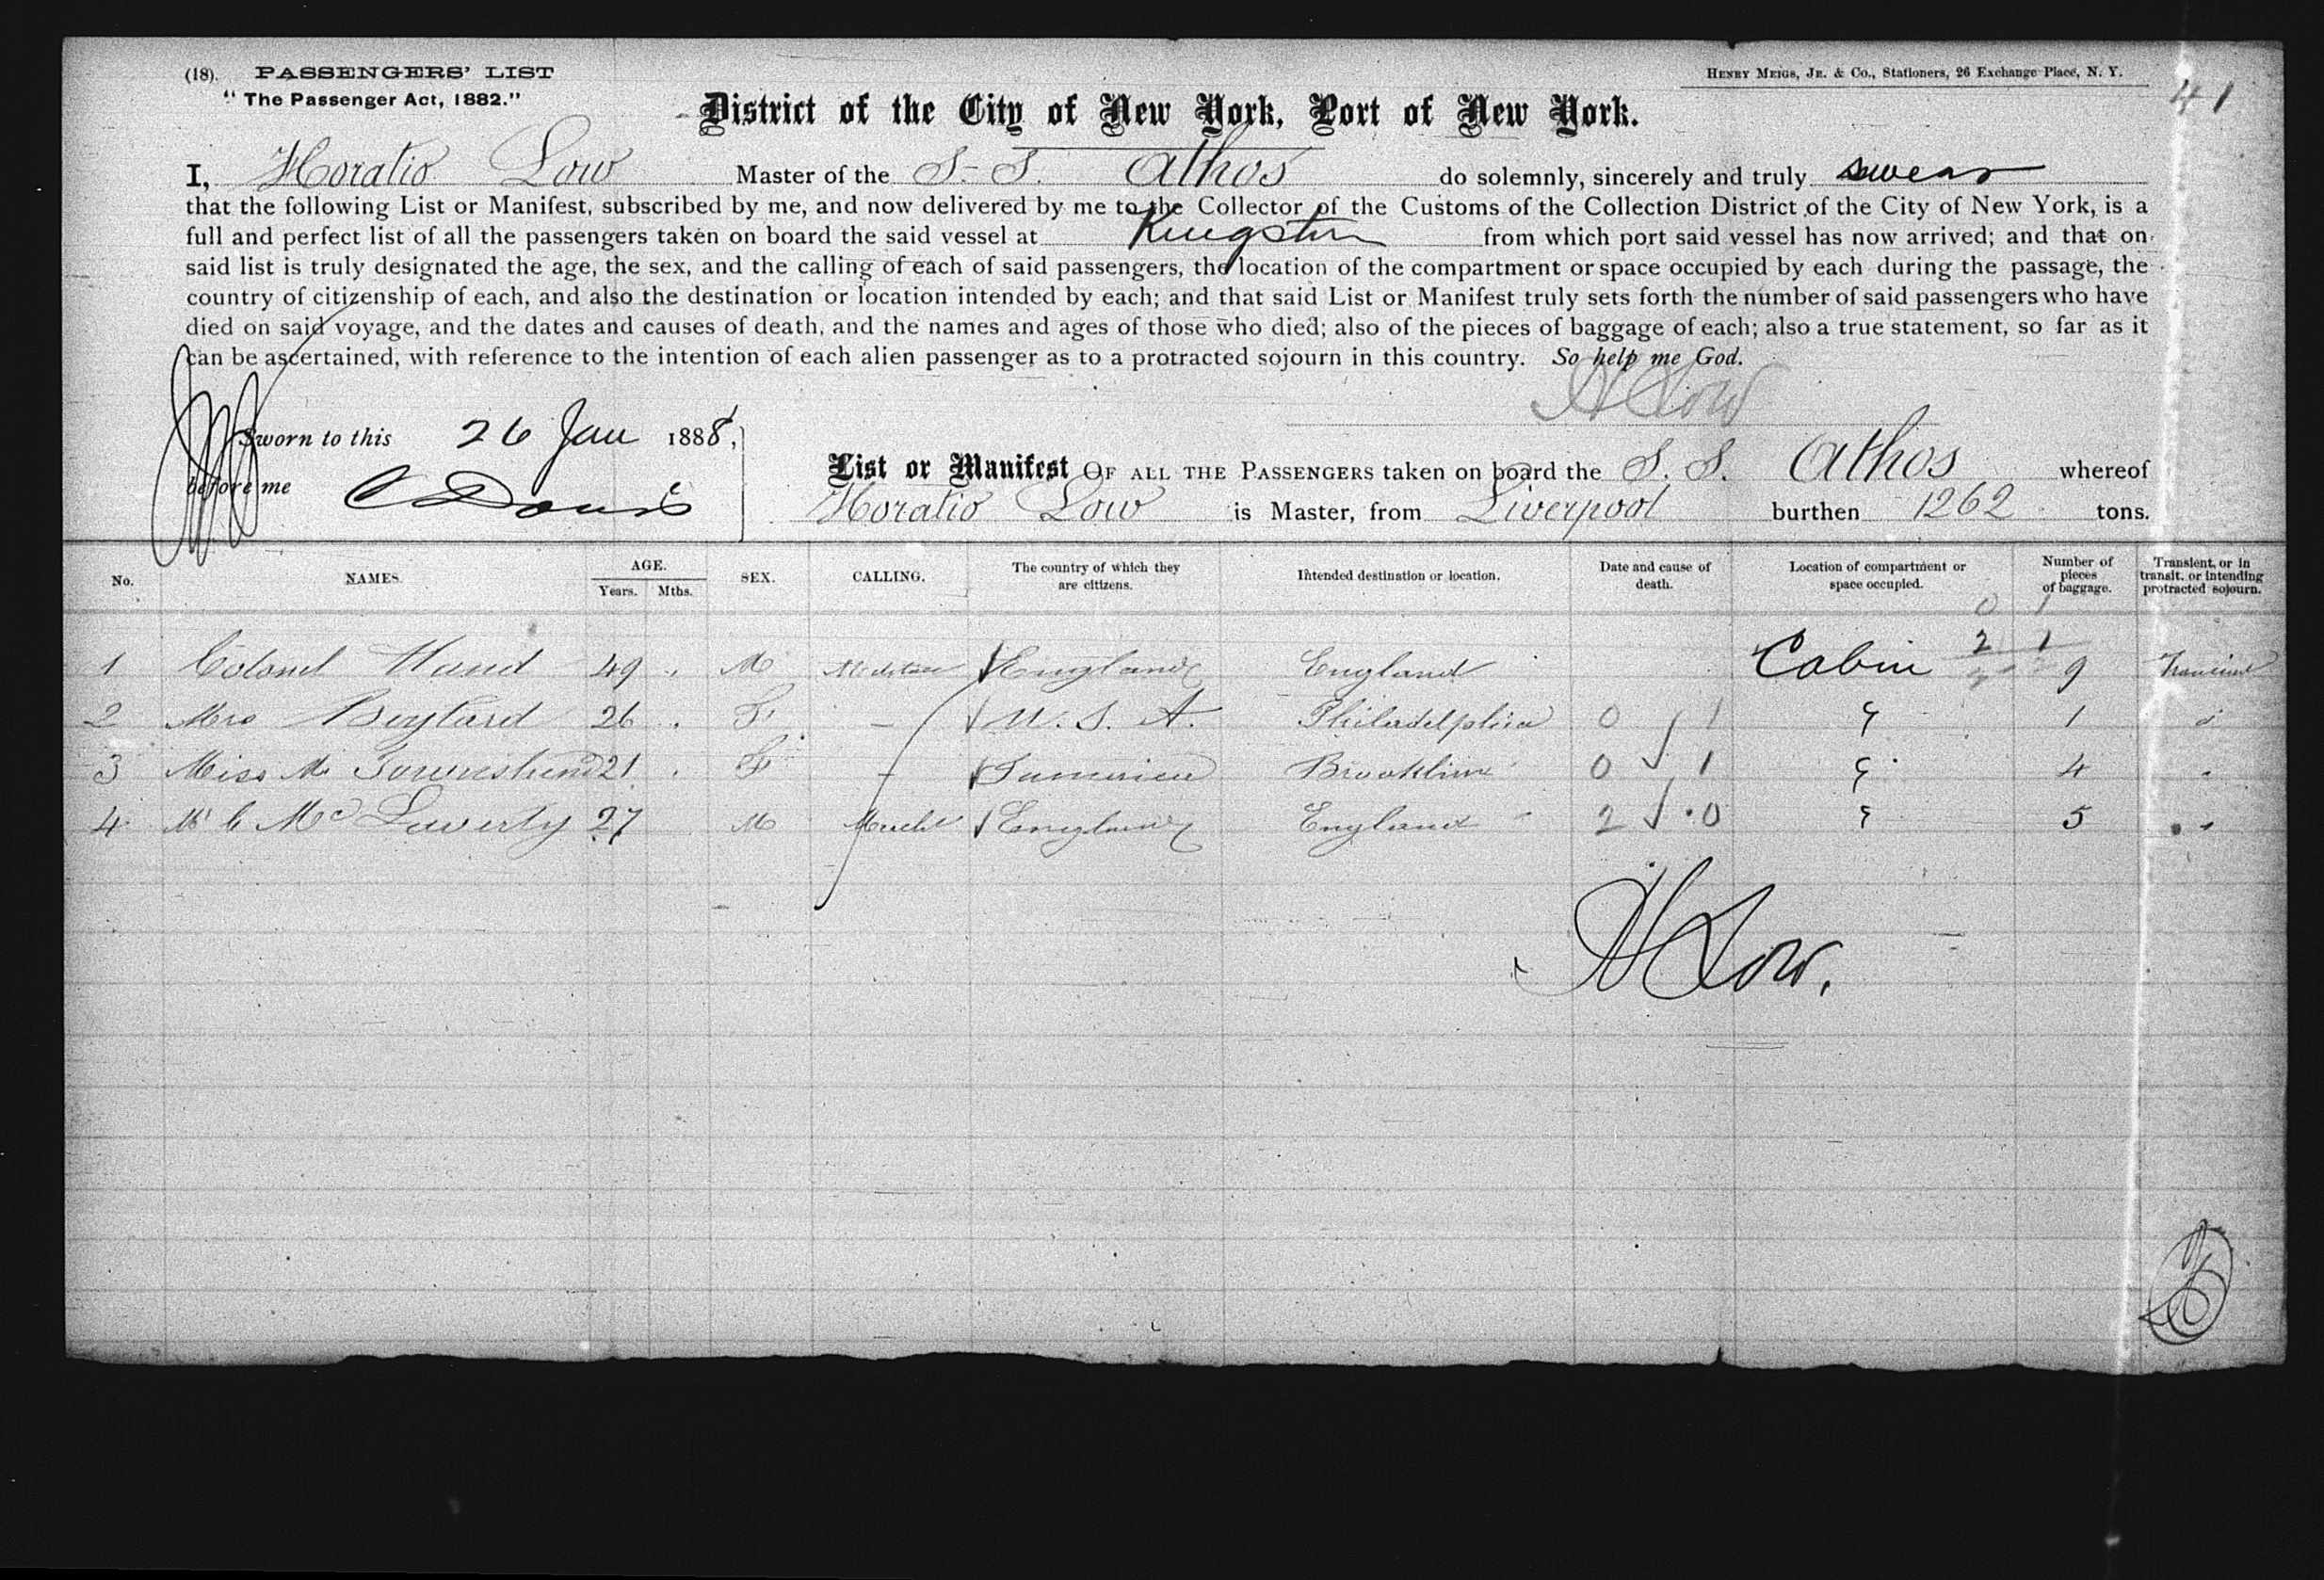 (18). PASSENGERS' LIST
"The Passenger Act, 1882."
HENRY MEIGS, JR. & Co., Stationers, 26 Exchange Place, N. Y.
41
District of the City of New York, Port of New York.
I, Horatio Low Master of the S. S. Athos do solemnly, sincerely and truly swear
that the following List or Manifest, subscribed by me, and now delivered by me to the Collector of the Customs of the Collection District of the City of New York, is a
full and perfect list of all the passengers taken on board the said vessel at Kingston from which port said vessel has now arrived; and that on
said list is truly designated the age, the sex, and the calling of each of said passengers, the location of the compartment or space occupied by each during the passage, the
country of citizenship of each, and also the destination or location intended by each; and that said List or Manifest truly sets forth the number of said passengers who have
died on said voyage, and the dates and causes of death, and the names and ages of those who died; also of the pieces of baggage of each; also a true statement, so far as it
can be ascertained, with reference to the intention of each alien passenger as to a protracted sojourn in this country. So help me God.
H Low
Sworn to this 26 Jan 1888,
before me
List or Manifest OF ALL THE PASSENGERS taken on board the S. S. Athos whereof
Horatio Low is Master, from Liverpool burthen 1262 tons.
No. NAMES. AGE. Years. Mths. SEX. CALLING. The country of which they are citizens. Intended destination or location. Date and cause of death. Location of compartment or space occupied. Number of pieces of baggage. Transient, or in transit, or intending protracted sojourn.
0 1
2 1
1 Colonel Hand 49 M England England Cabin 9 Transient
2 Mrs 26 F - U. S. A. Philadelphia 0 1 1
3 Miss M Townshend 21 F - Jamaica Brookline 0 1 4
4 Mr C McLaverty 27 M Mercht England England 2 0 5
H Low.